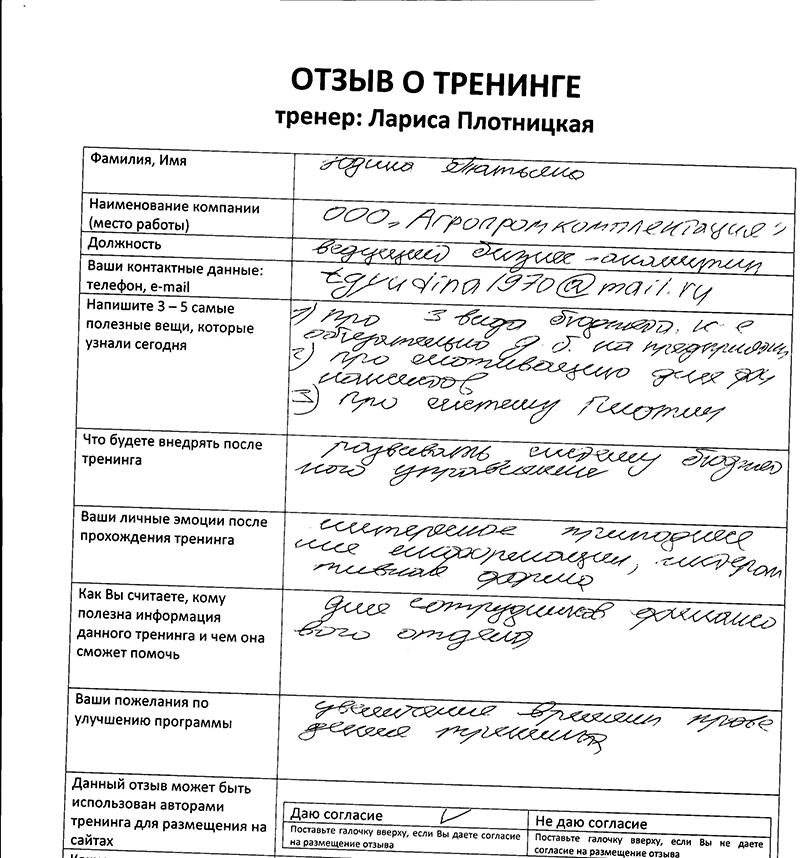 ОТЗЫВ О ТРЕНИНГЕ
тренер: Лариса Плотницкая
Фамилия, Имя
Юдина Татьяна
Наименование компании
(место работы)
ООО "Агропромкомплектация"
Должность
ведущий бизнес-аналитик
Ваши контактные данные:
телефон, e-mail
tgyudina1970@mail.ru
Напишите 3 – 5 самые
полезные вещи, которые
узнали сегодня
1) про 3 вида бюджета, к-е
обязательно д.б. на предприятии
2) про мотивацию для фи
нансистов
3) про систему
Что будете внедрять после
тренинга
развивать систему бюджет
ного управления
Ваши личные эмоции после
прохождения тренинга
интересное преподнесе
ние информации, интерак
тивная форма
Как Вы считаете, кому
полезна информация
данного тренинга и чем она
сможет помочь
для сотрудников финансо
вого отдела
Ваши пожелания по
улучшению программы
увеличение времени прове
дения тренинга
Данный отзыв может быть
использован авторами
тренинга для размещения на
сайтах
Даю согласие
Не даю согласие
Поставьте галочку вверху, если Вы даете согласие
на размещение отзыва
Поставьте галочку вверху, если Вы не даете
согласие на размещение отзыва